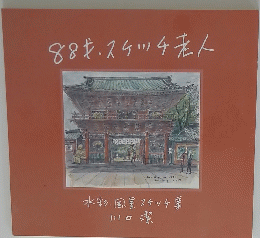 88才.スケッチ老人
水彩 風景スケッチ集
川口 潔